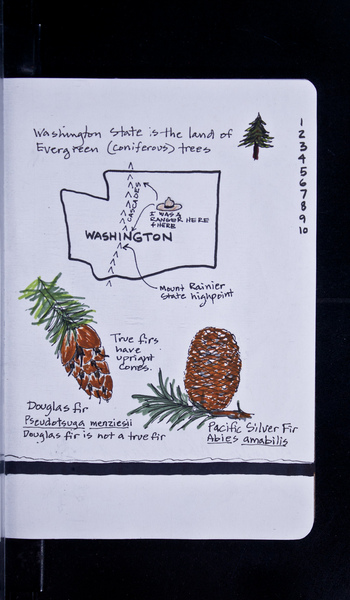 Washington State is the land of
Evergreen (coniferous) trees
1
2
3
4
5
6
7
8
9
10
CASCADES
I WAS A
RANGER HERE
+ HERE
WASHINGTON
Mount Rainier
State highpoint
True firs
have
upright
cones.
Douglas fir
Pseudotsuga menziesii
Douglas fir is not a true fir
Pacific Silver Fir
Abies amabilis